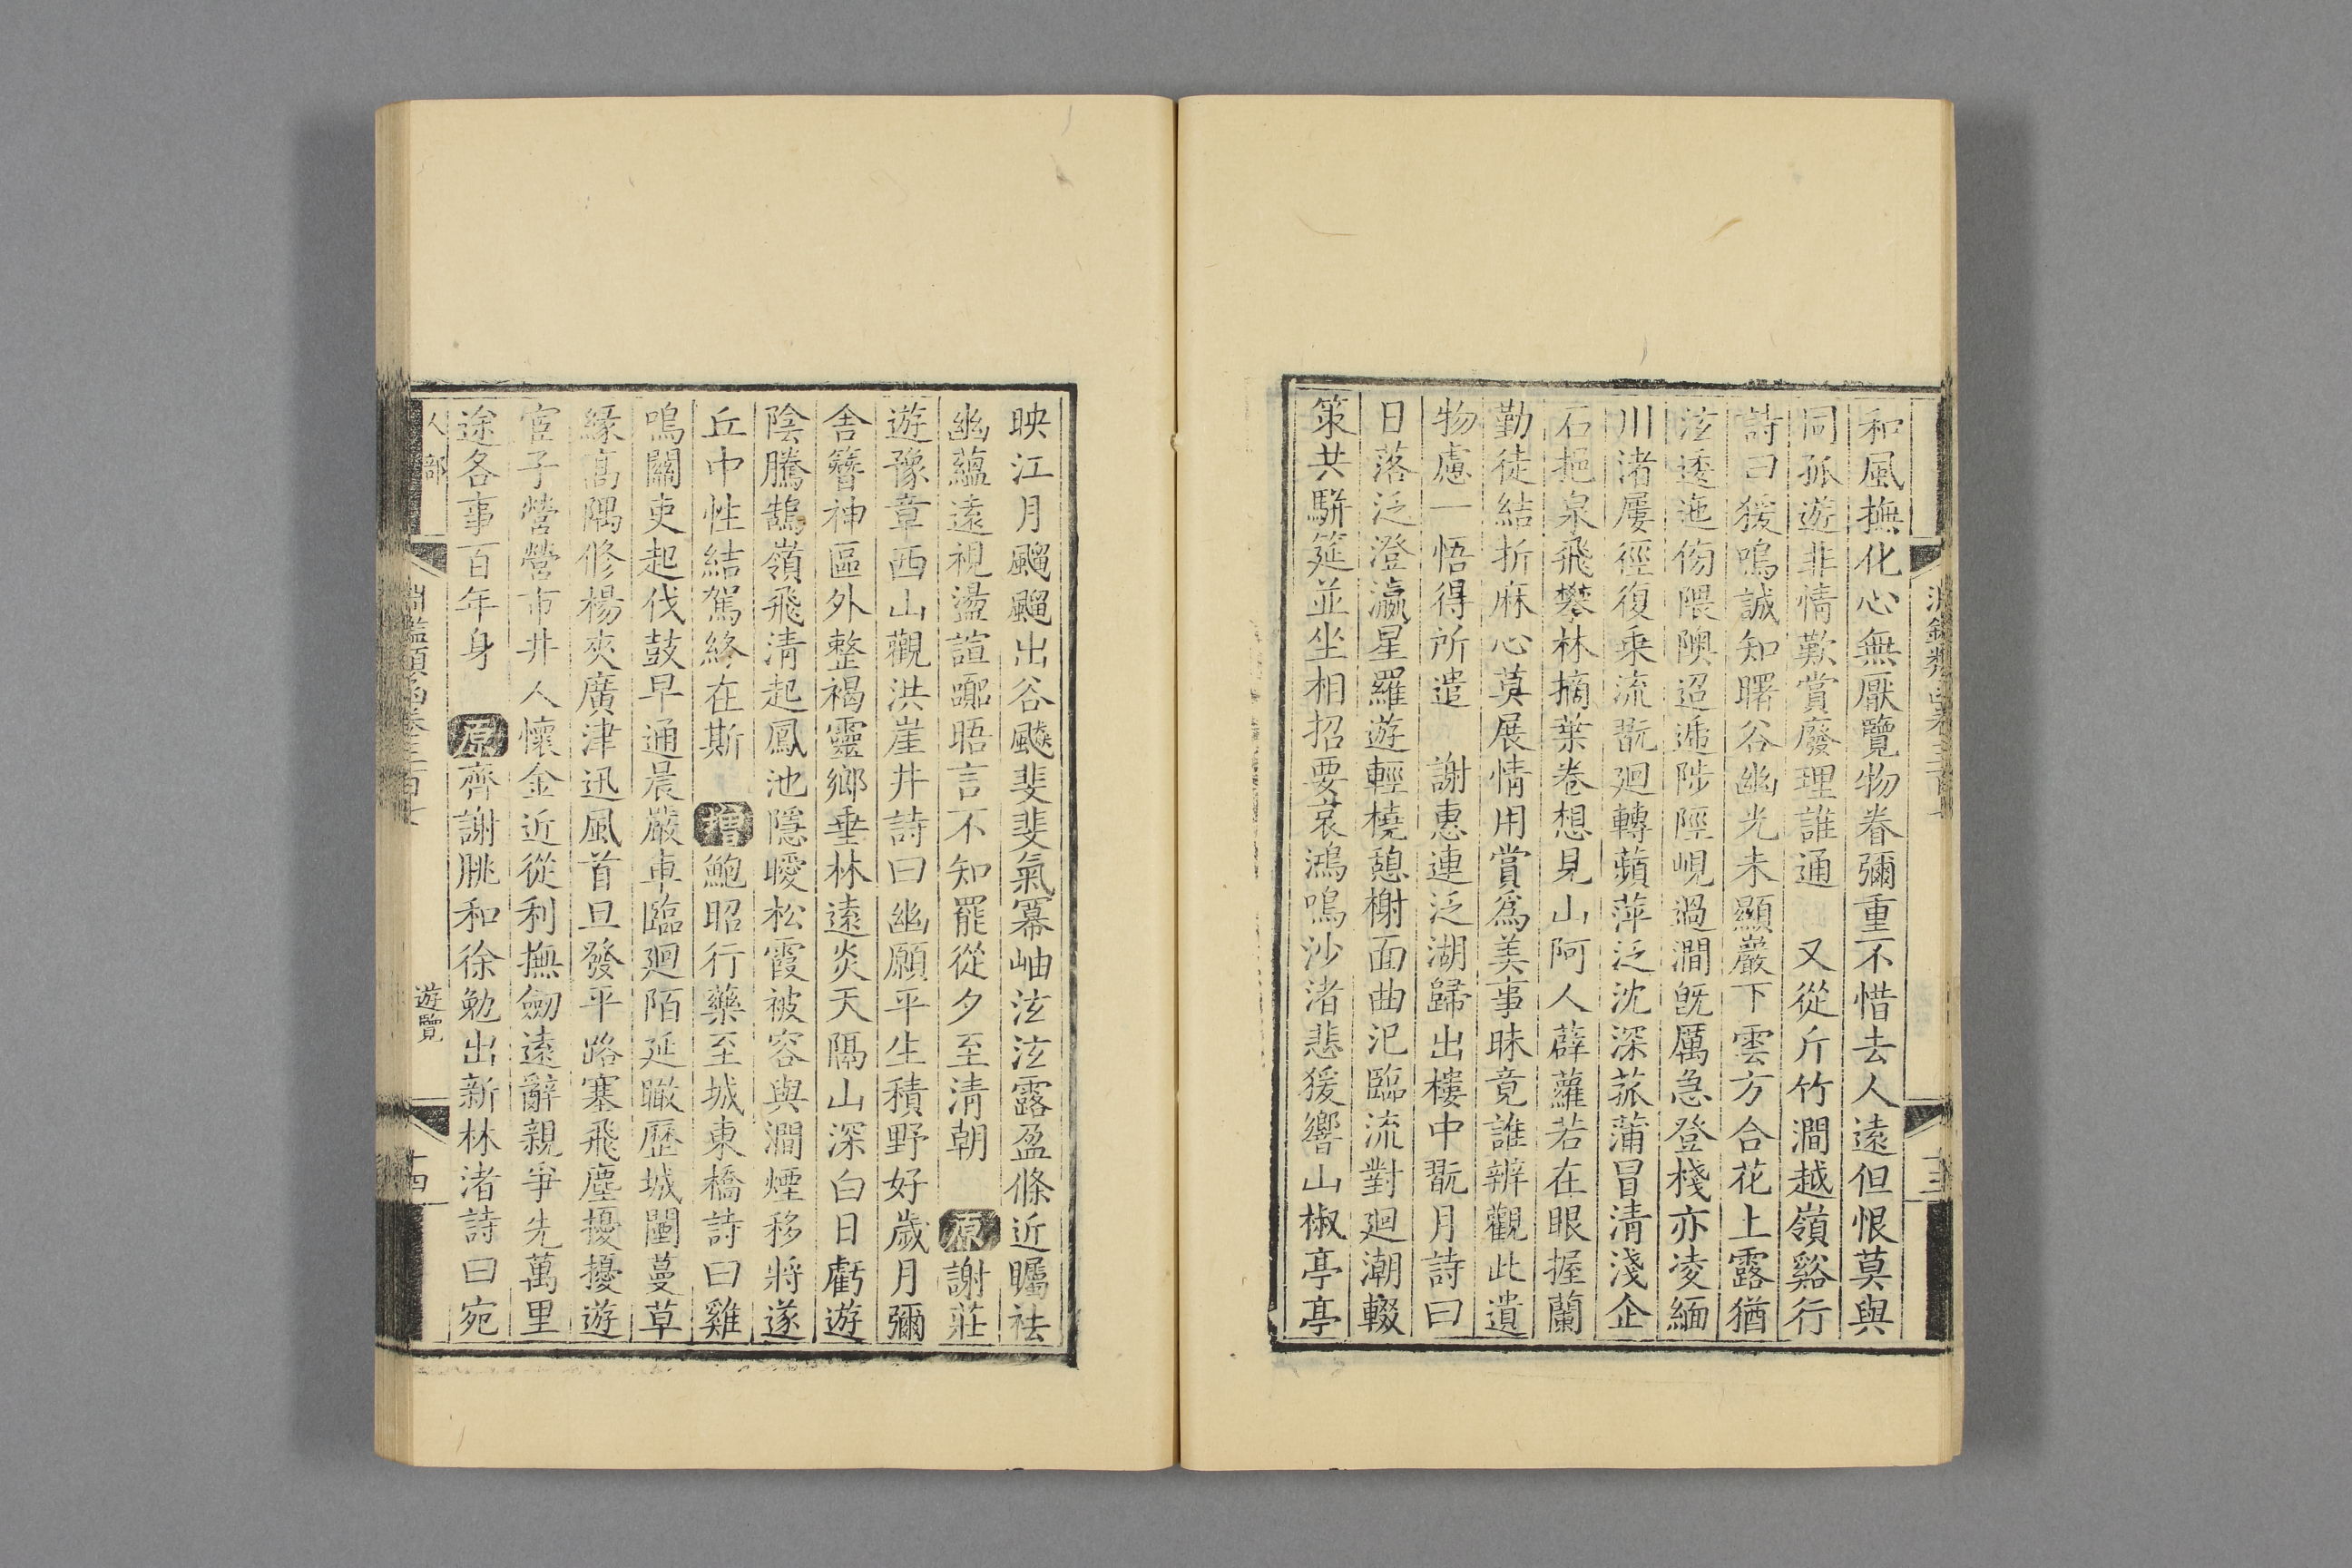 和風撫化心無厭覽物眷彌重不惜去人遠但恨莫與
同孤遊非情歎賞廢理誰通　又從斤竹澗越嶺谿行
詩曰猨鳴誠知曙谷幽光未顯巖下雲方合花上露猶
泫逶迤傍隈隩迢遞陟陘峴過澗旣厲急登棧亦凌緬
川渚屢徑復乘流翫廻轉蘋萍泛沈深菰蒲冒清淺企
石挹泉飛攀林擿葉卷想見山阿人薜蘿若在眼握蘭
勤徒結折麻心莫展情用賞爲美事昧竟誰辨觀此遺
物慮一悟得所遣　謝惠連泛湖歸出樓中翫月詩曰
日落泛澄瀛星羅遊輕橈憩榭面曲汜臨流對廻潮輟
策共駢筵並坐相招要哀鴻鳴沙渚悲猨響山椒亭亭
映江月飀飀出谷飈斐斐氣冪岫泫泫露盈條近矚祛
幽蘊遠視盪諠嚻晤言不知罷從夕至清朝　原謝莊
遊豫章西山觀洪崖井詩曰幽願平生積野好歲月彌
舍簪神區外整褐靈鄉垂林遠炎天隔山深白日虧遊
陰騰鵠嶺飛清起鳳池隱曖松霞被容與澗煙移將遂
丘中性結駕終在斯　增鮑昭行藥至城東橋詩曰雞
鳴關吏起伐鼓早通晨嚴車臨廻陌延瞰歷城闉蔓草
緣高隅修楊夾廣津迅風首旦發平路塞飛塵擾擾遊
宦子營營市井人懷金近從利撫劒遠辭親爭先萬里
途各事百年身　原齊謝朓和徐勉出新林渚詩曰宛
人部
淵鑑類函卷三百七
遊覽
十四